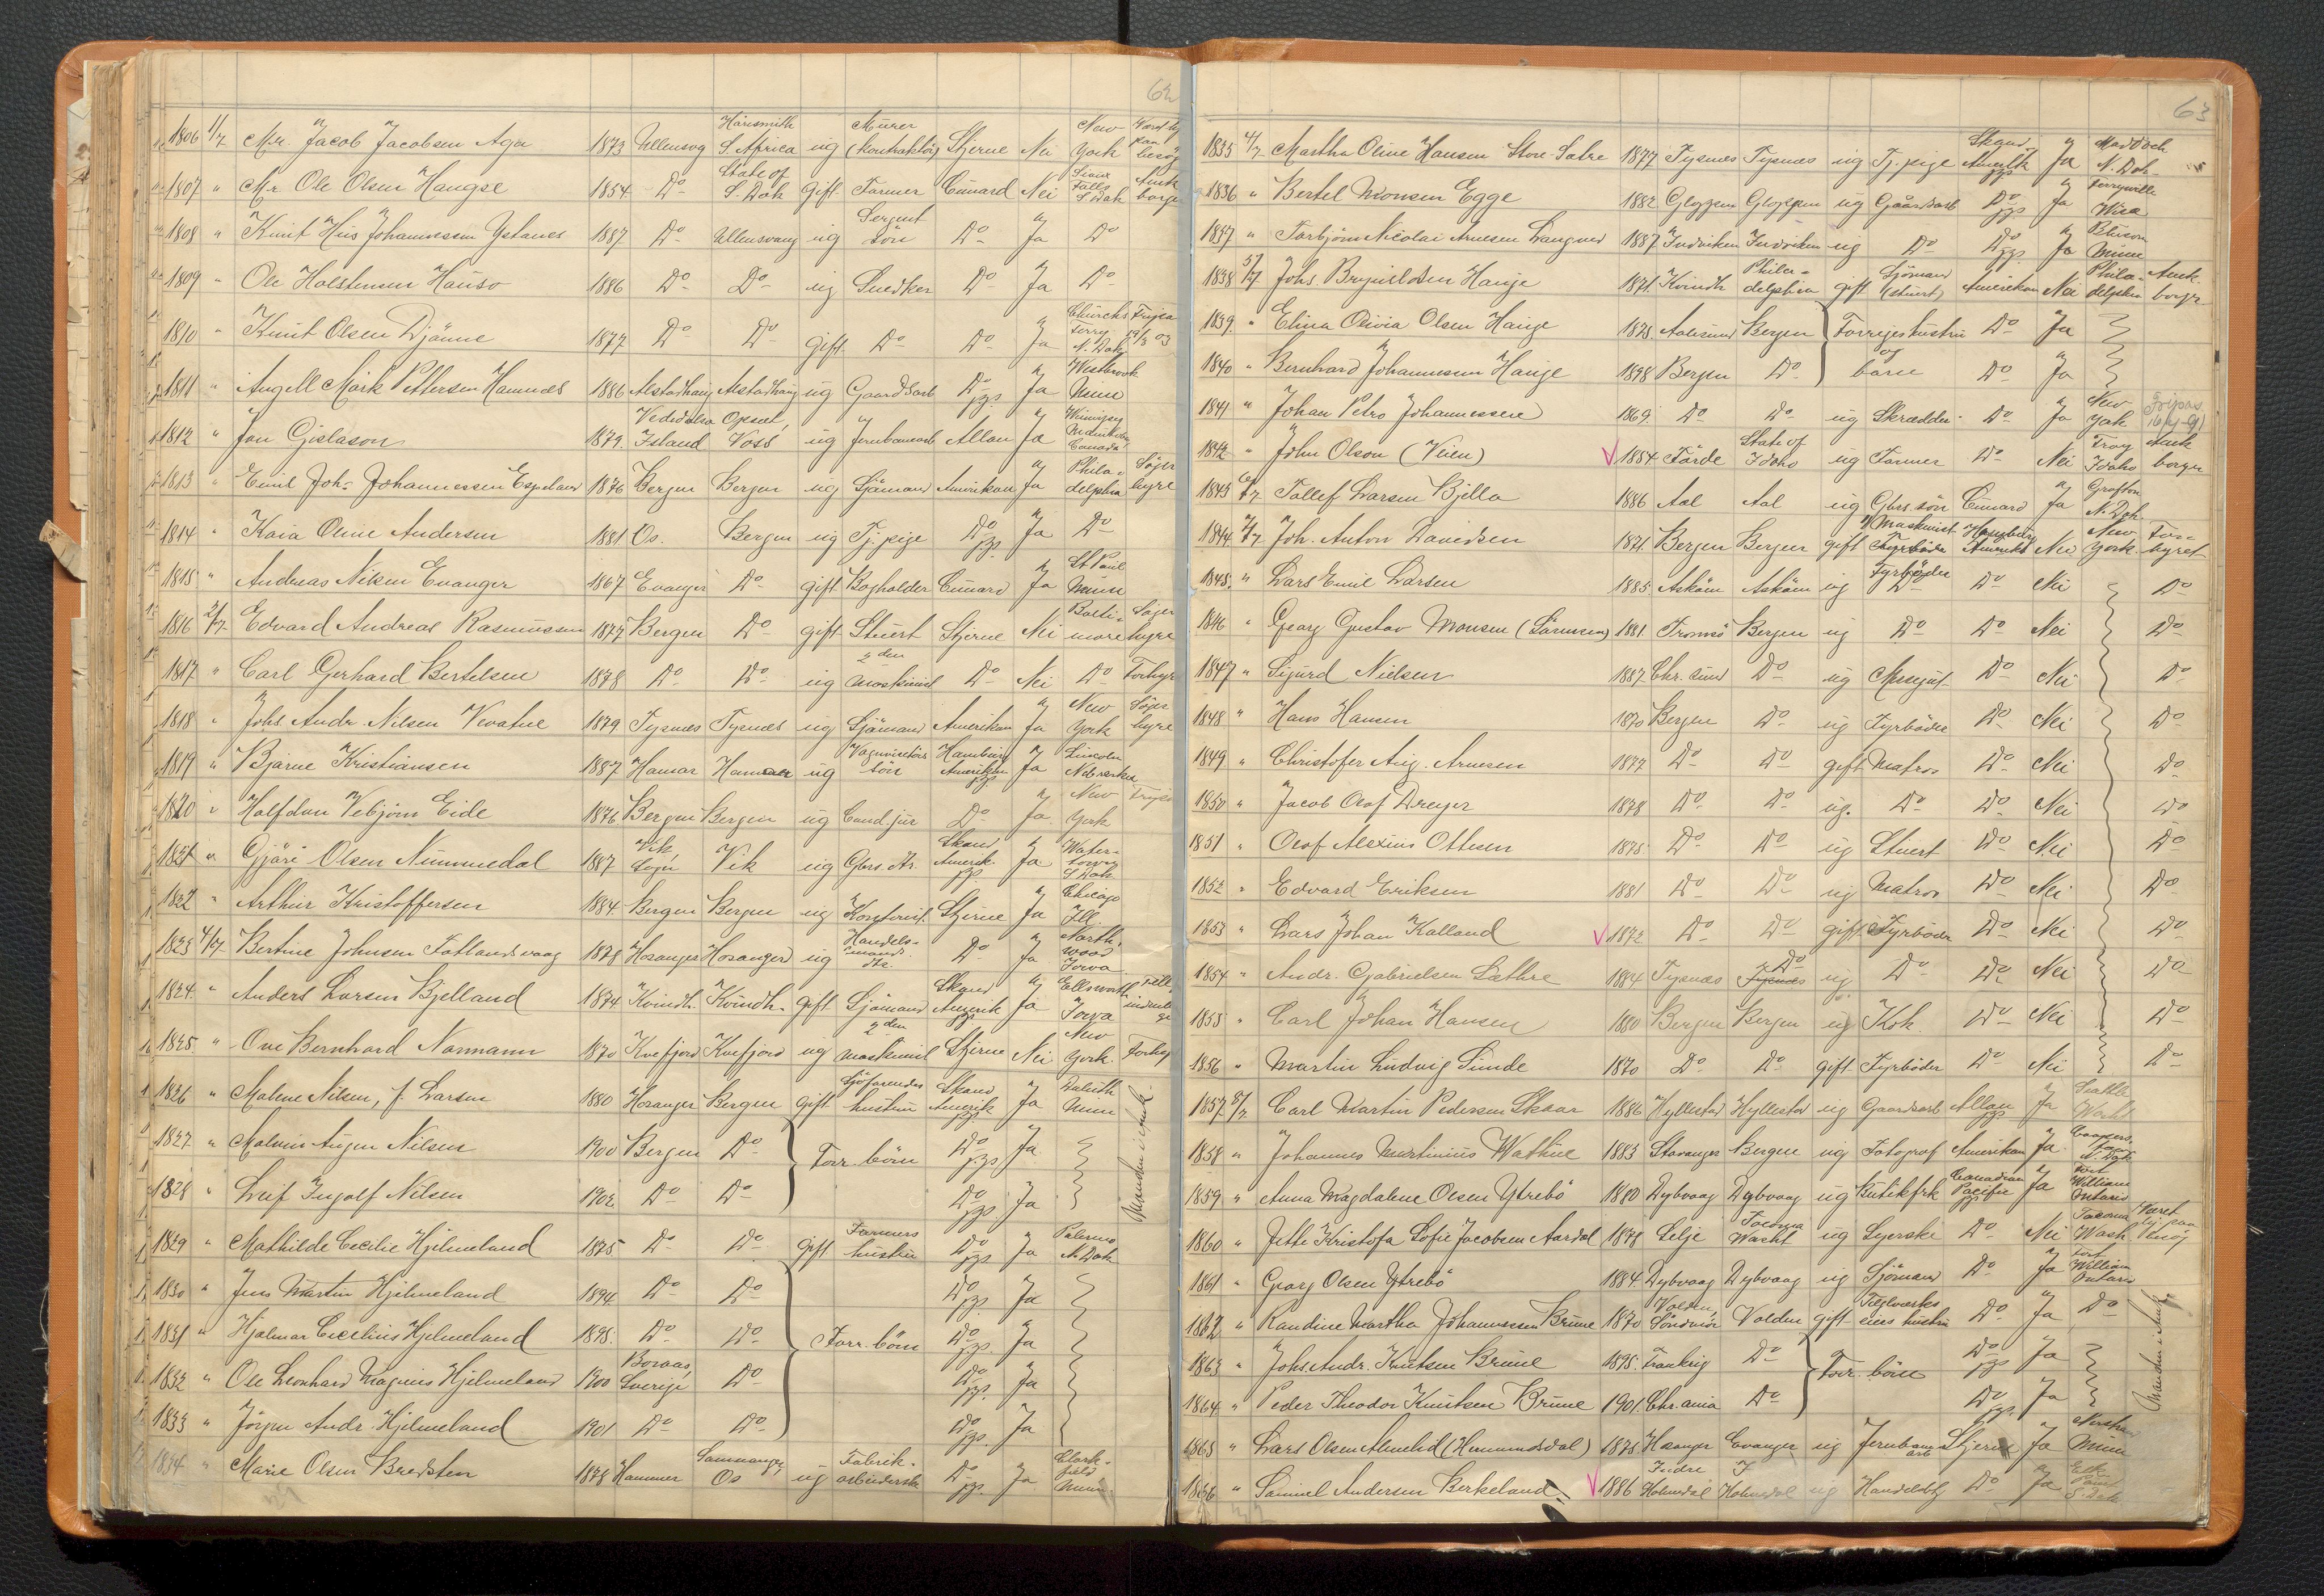 62
1806 1/7 Mr. Jacob Jacobsen Aga 1873 Ullensvg Harismith S. Africa ug Murer (kontraktör) Stjerne Nei New York Været her paa besøg
1807 " Mr Ole Olsen Haugse 1854 Do State of S. Dak gift Farmer Cunard Nei Sioux Falls S Dak Amk borger
1808 " Knut Hus Johannessen Ystanes 1887 Do Ullensvang ug Sergent sön Do Ja Do
1809 " Ole Holstensen Hauso 1886 Do Do ug Snedker Do Ja Do
1810 " Knut Olsen Djönne 1877 Do Do gift Do Do Ja Churchs ferry N. Dak 19/3 03
1811 " Angell Mörk Pettersen Hamnes 1886 Alstadhaug Alstadhaug ug Gaardsarb Do pgs Ja Westbrook Minn
1812 " Jon Gislason 1879 Island Opset, Voss ug Jernbanearb Allan Ja Winnipeg Canada
1813 " Emil Joh. Johannessen Espeland 1876 Bergen Bergen ug Sjömand Amerikan Ja Phila- delphia Söger hyre
1814 " Kaia Oline Andersen 1881 Os. Bergen ug Tj. pige Do pgs. Ja Do
1815 " Andreas Nilsen Evanger 1867 Evanger Do gift Bogholder Cunard Ja St Paul Minn
1816 2/7 Edvard Andreas Rasmussen 1877 Bergen Do gift Stuert Stjerne Nei Balti- more Söger hyre
1817 " Carl Gerhard Bertelsen 1878 Do Do ug 2den maskinist Do Nei Do Forhyr
1818 " Johs Andr. Nilsen Vevatne 1879 Tysnes Tysnes ug Sjömand Amerikan Ja New York Söger hyre
1819 " Bjarne Kristiansen 1887 Hamar Hamar ug sön Hamburg Amerika pgs Ja Lincoln Nebraska
1820 " Halfdan Vebjörn Eide 1876 Bergen Bergen ug Cand. jur Do Ja New York
1821 " Gjöri Olsen Nummedal 1887 Vik Sogn Vik ug Gbrs. dtr. Skand Amerik. pgs Ja Water- town S Dak
1822 " Arthur Kristoffersen 1884 Bergen Bergen ug Stjerne Ja Chicago Ill
1823 4/7 Bertine Johnsen Fotlandsvaag 1878 Hosanger Hosanger ug Handels- mands- dtr. Do Ja North. wood Iowa
1824 " Anders Larsen Bjelland 1874 Kvindh. Kvindh. gift Sjömand Skand Amerik pgs Ja Ellsworth Iowa
1825 " Ove Bernhard Normann 1870 Kvefjord Kvefjord ug 2den maskinist Stjerne Nei New York. Forhyr
1826 " Malene Nilsen, f. Larsen 1880 Hosanger Bergen gift Sjöfarendes hustru Skand Amerik pgs Ja Duluth Minn Manden i Amk.
1827 " Malvin August Nilsen 1900 Bergen Do Forr. börn Do pgs Ja
1828 " Leif Ingolf Nilsen 1902 Do Do Do pgs. Ja
1829 " Mathilde Cecilie Hjelmeland 1875 Do Do gift Farmers hustru Do pgs Ja Palermo N Dak
1830 " Jens Martin Hjelmeland 1894 Do Do Do pgs. Ja
1831 " Hjalmar Cecilius Hjelmeland 1898. Do Do Forr. börn Do pgs. Ja
1832 " Ole Leonhard Magnus Hjelmeland 1900 Boraas, Sverige Do Do pgs. Ja
1833 " Jörgen Andr. Hjelmeland 1901 Do Do Do pgs. Ja
1834 " Marie Olsen Bredsten 1878 Hammer Samnanger, Os ug Fabrik- arbeiderske Do pgs. Ja Clark- field Minn.
63
1835 4/7 Martha Oline Hansen Store Satre 1877 Tysnes Tysnes ug Tj. pige Skand. Amerik pgs Ja Maddock N. Dak.
1836 " Bertel Monsen Egge 1882 Gloppen Gloppen ug Gaardsarb Do pgs Ja Ferryville Wisc
1837 " Torbjörn Nicolai Arnesen Langnes 1887 Indviken Indviken ug Do Do pgs Ja Minn
1838 5/7 Johs. Brynildsen Hauge 1871. Kvindh Phila- delphia gift Sjömand (stuert) Amerikan Nei Phila- delphia Amk. borger
1839. " Elina Olivia Olsen Hauge 1878. Aalesund Bergen Forriges hustru Do Ja
1840 " Bernhard Johannessen Hauge 1898 Bergen Do og barn Do Ja
1841 " Johan Petro Johannessen 1869. Do Do ug Skrædder Do Ja New York
1842 " John Olson (Veien) V 1854 Förde State of Idaho ug Farmer Do Nei Troy Idaho Amk borger
1843 6/7 Tollef Larsen Bjella 1886 Aal Aal ug Gbrs. sön Cunard Ja Grafton N. Dak
1844 7/7 Joh. Anton Davidsen 1871. Bergen Bergen gift Maskinist Fyrböder Hamburg Amerika Nei New York. For- hyret
1845. " Lars Emil Larsen 1885. Asköen Asköen ug Fyrböder Do Do Nei Do
1846 " Georg Gustav Monsen (Sörensen) 1881. Tromsö Bergen ug Do Do Nei Do
1847 " Sigurd Nielsen 1887. Chr. sund Do ug Messgut Do Nei Do
1848 " Hans Hansen 1870 Bergen Do ug Fyrböder Do Nei Do
1849 " Christofer Aug. Arnesen 1877 Do Do gift Matros Do Nei Do
1850 " Jacob Olaf Dreyer 1878 Do Do ug. Do Do Nei Do
1851 " Olaf Alexius Ottesen 1875. Do Do ug Stuert Do Nei Do
1852 " Edvard Eriksen 1881 Do Do ug Matros Do Nei Do
1853 " Lars Johan Kalland V 1872 Do Do gift Fyrböder Do Nei Do
1854 " Andr. Gabrielsen Læthre 1884 Tysnes Tysnes Do ug Do Do Nei Do
1855 " Carl Johan Hansen 1880 Bergen Bergen ug Kok. Do Nei Do
1856 " Martin Ludvig Sunde 1870 Do Do gift Fyrböder Do Nei Do
1857 8/7 Carl Martin Pedersen Skaar 1886 Hyllestad Hyllestad ug Gaardsarb Allan pgs Ja Seattle Wash
1858 " Johannes Martinius Wathne 1883 Stavanger Bergen ug Fotograf Amerikan Ja Coopers- town N. Dak
1859 " Anna Magdalene Olsen Ytrebö 1880 Dybvaag Dybvaag ug Butikfrk Canadian Pacific pgs Ja Fort William Ontario
1860 " Jette Kristofa Sofie Jacobsen Aardal 1878 Selje Tacoma Wash ug Syerske Do Nei Tacoma Wash Været her paa besög
1861 " Georg Olsen Ytrebö 1884. Dybvaag Dybvaag ug Sjömand Do Ja Fort William Ontario
1862 " Randine Martha Johannessen Brune 1870 Volden, Söndmör Volden gift Teglverks eiers hustru Do Ja Do Manden i Amk.
1863 " Johs Andr. Knutsen Brune 1898. Frankrig Do Forr. börn Do pgs Ja
1864 " Peder Theodor Knutsen Brune 1901. Chr. ania Do Do pgs. Ja
1865 " Lars Olsen Almelid (Hermundsdal) 1875. Hosanger Evanger ug Jernbane arb Stjerne Ja Minn
1866 " Samuel Andersen Berkeland V 1886 Indre Holmedal I Holmedal ug Handelsbtj Do Ja Elk Point S. Dak